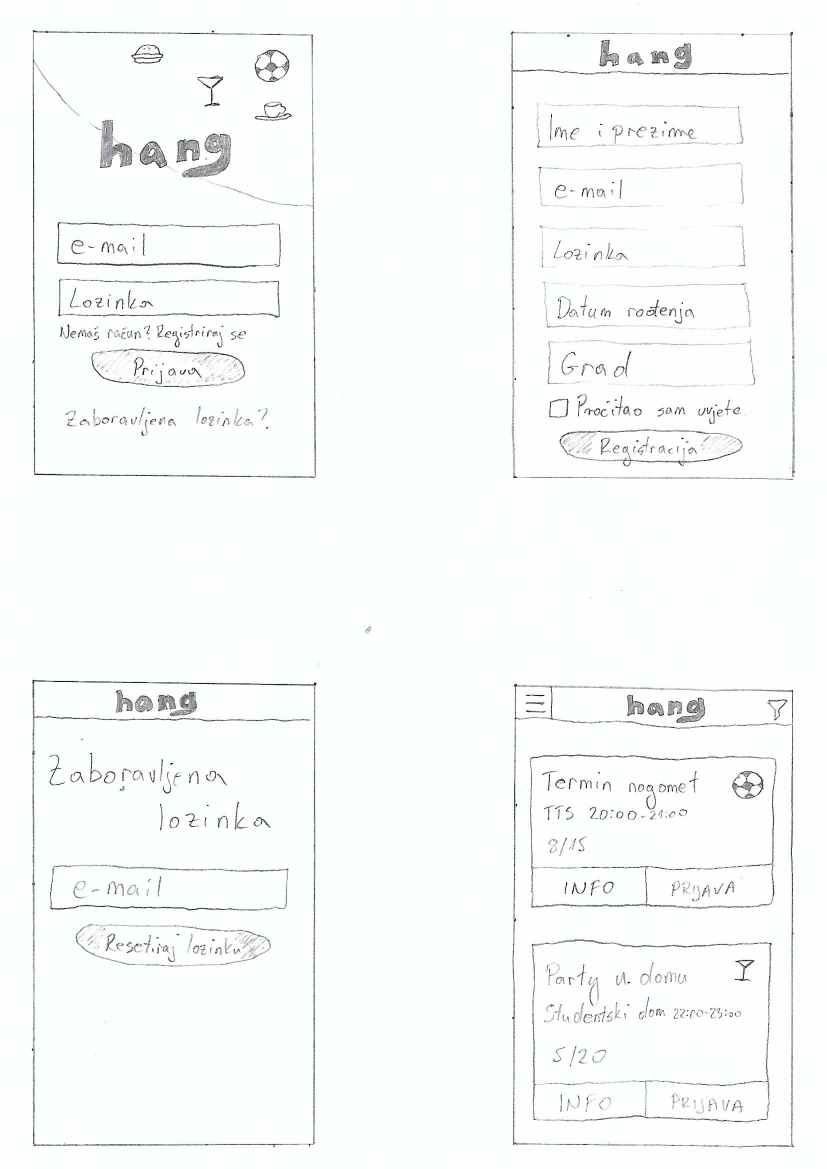 hang
e-mail
Lozinka
Nemaš račun? Registriraj se
Prijava
Zaboravljena lozinka?
hang
Ime i prezime
e-mail
Lozinka
Datum rođenja
Grad
Pročitao sam uvjete
Registracija
hang
Zaboravljena
lozinka
e-mail
Resetiraj lozinku
hang
Termin nogomet
TTS 20:00-21:00
8/15
INFO PRIJAVA
Party u domu
Studentski dom 22:00-23:00
5/20
INFO PRIJAVA